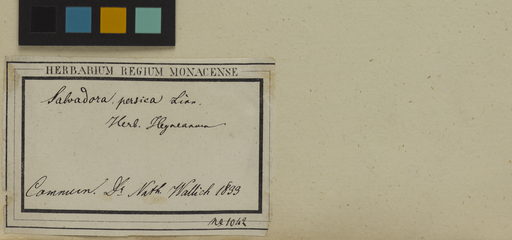 HERBARIUM REGIUM MONACENSE
Salvadora persica Linn.
Herb. Heyneanum
Commun. Dr. Nath. Wallich 1833